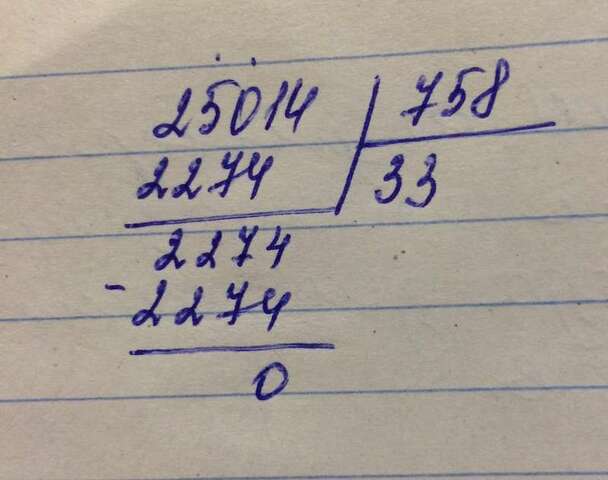 25014 758
2274 33
2274
- 2274
0